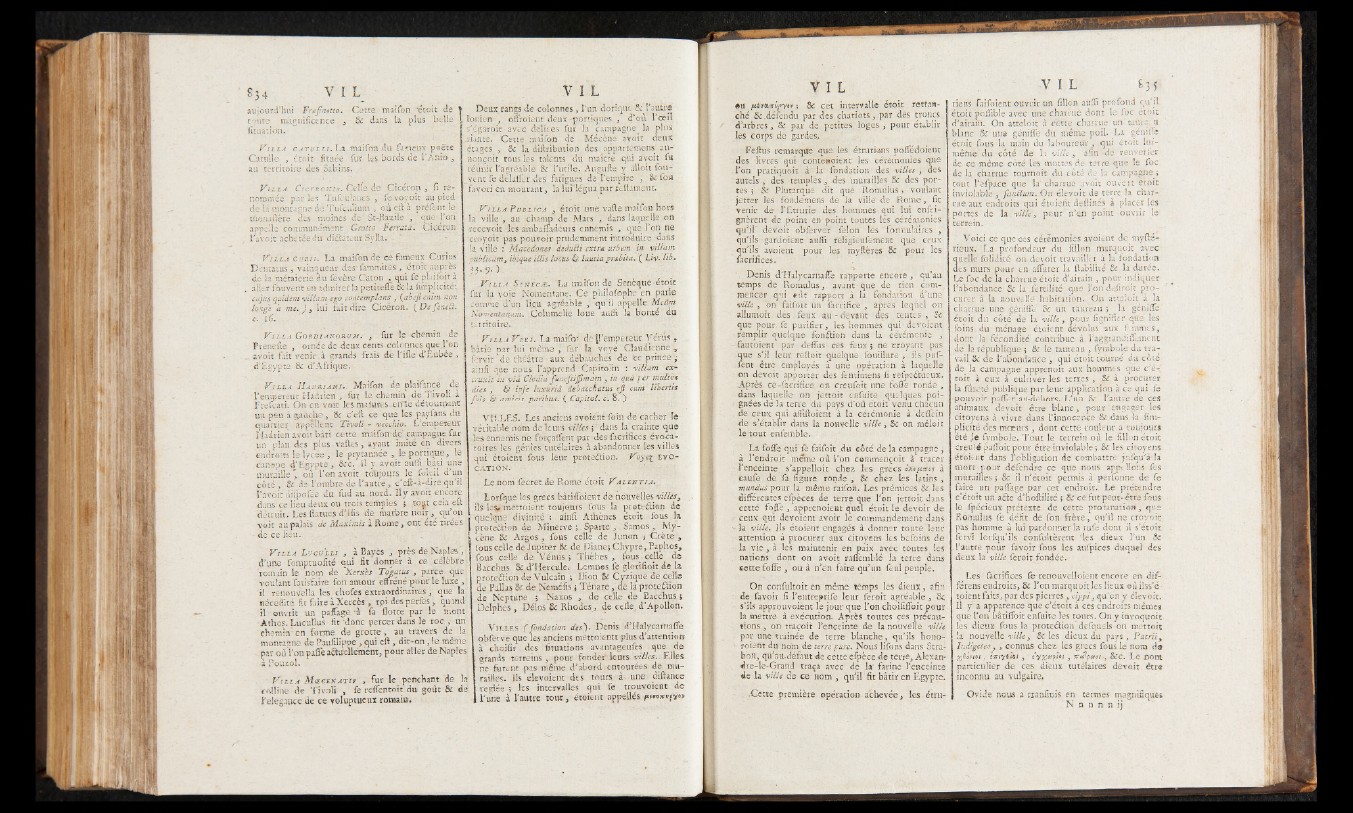 834 VIL VIL
aujourd'hui Frascatta. Cette maison étoit de
toute magnificence , & dans la plus belle
situation.
VILLA CATULLI. La maison du fameux poëte
Catulle , étoit située sur les bords de l'Anio ,
au territoire des Sabins.
VILLA CICERONIS. Celle de Cicéron , si re-
nommée par les Tusculanes , se voyoit au pied
de la montagne de Tusculum , où est à présent le
monastère des moines de St-Bazile , que l'on
appelle communément Grotta Ferrata. Cicéron
l'avoit achetée du dictateur Sylla.
VILLA CURII. La maison de ce fameux Curius
Dentatus , vainqueur des samnites , étoit auprès
de la métairie du sévère Caton , qui se plaisoit à
aller souvent en admirer la petitesse & la simplicité:
cujus quidem villam ego contemplans , (abest enim non
longè à me. ) , lui fait dire Cicéron. ( De senect.
c. 16.
VILLA GORDIANORUM , sur le chemin de
Preneste , ornée de deux cents colonnes que l'on
avoit fait venir à grands frais de l'isle d'Eubée ,
d'Egypte & d'Afrique.
VILLA HADRIANI. Maison de plaisance de
l'empereur Hadrien , sur le chemin de Tivoli à
Frescati. On en voit les masures en se détournant
un peu à gauche , & c'est ce que les paysans du
quartier appellent Tivoli - vecchio. L'empereur
Hadrien avoit bâti cette maison de campagne sur
un plan des plus vastes , ayant imité en divers
endroits le lycée , le prytannée , le portique , le
canope d'Egypte , &c. il y avoit aussi bâti une
muraille , où l'on avoit toujours le soleil d'un
côté , & de l'ombre de l'autre , c'est-à-dire qu'il
l'avoit disposée du sud au nord. Il y avoit encore
dans ce lieu deux ou trois temples ; tout cela est
détruit. Les statues d'Isis de marbre noir , qu'on
voit au palais de Maximis à Rome , ont été tirées
de ce lieu.
VILLA LUCULLI , à Bayes , près de Naples ,
d'une somptuosité qui fit donner à ce célèbre
romain le nom de Xerxès Togatus , parce que
voulant satisfaire son amour effréné pour le luxe ,
il renouvella les choses extraordinaires , que la
nécessité fit faire à Xercès , roi des perses , quand
il ouvrit un passage à sa flotte par le mont
Athos. Lucullus fit donc percer dans le roc , un
chemin en forme de grotte , au travers de la
montagne de Pausilippe , qui est , dit-on , le même
par où l'on passe actuellement, pour aller de Naples
à Pouzol.
VILLA MÆCENATIS , sur le penchant de la
colline de Tivoli , se ressentoit du goût & de
l'élégance de ce voluptueux romain.
Deux rangs de colonnes , l'un dorique & l'autre
Ionien , offroient deux portiques , d'où l'œil
s'égaroit avec délices sur la campagne la plus
riante. Cette maison de Mécène avoit deux
étages , & la distribution des appartemens an-
nonçoit tous les talents du maître qui avoit su
réunir l'agréable & l'utile. Auguste y alloit sou-
vent se délasser des fatigues de l'empire , & son
favori en mourant , la lui légua par testament.
VILLA PUBLICA , étoit une vaste maison hors
la ville , au champ de Mars , dans laquelle on
recevoit les ambassadeurs ennemis , que l'on ne
croyoit pas pouvoir prudemment introduire dans
la ville : Macedones deducti extra urbem in villam
publicam, ibique illis locus & lautia præbita. ( Liv. lib.
33. 9. )
VILLA SENECÆ. La maison de Senèque étoit
sur la voie Nomentane. Ce philosophe en parle
comme d'un lieu agréable , qu'il appelle Meum
Nomentanum. Columelle loue aussi la bonté du
territoire.
VILLA VERI. La maison de l'empereur Vérus ,
bâtie par lui même , sur la voye Claudienne ,
servit de théatre aux débauches de ce prince ,
ainsi que nous l'apprend Capitolin : villam ex-
truxit in via Clodia famosissimam , in qua per multos
dies , & ipse luxuriâ debacchatus est cum libertis
suis & amicis paribus. ( Capitol. c. 8. )
VILLES. Les anciens avoient soin de cacher le
véritable nom de leurs villes ; dans la crainte que
les ennemis ne forçassent par des sacrifices évoca-
toires les génies tutélaires à abandonner les villes
qui étoient sous leur protection. Voyez ÉVO-
CATION.
Le nom secret de Rome étoit VALENTIA.
Lorsque les grecs bâtissoient de nouvelles villes,
ils les mettoient toujours sous la protection de
quelque divinité : ainsi Athènes étoit sous la
protection de Minerve ; Sparte , Samos , My-
cène & Argos , sous celle de Junon ; Crète ,
sous celle de Jupiter & de Diane; Chypre, Paphos,
sous celle de Vénus ; Thèbes , sous celle de
Bacchus & d'Hercule. Lemnos se glorifioit de la
protection de Vulcain ; Ilion & Cyzique de celle
de Pallas & de Nemésis ; Ténare , de la protection
de Neptune ; Naxos , de celle de Bacchus ;
Delphes , Délos & Rhodes , de celle d'Apollon.
VILLES ( fondation des ). Denis d'Halycarnasse
observe que les anciens mettoient plus d'attention
à choisir des situations avantageuses que de
grands terreins , pour fonder leurs villes. Elles
ne furent pas même d'abord entourées de mu-
railles. Ils élevoient des tours à une distance
réglée ; les intervalles qui se trouvoient de
l'une à l'autre tour , étoient appellés μεσοπυργιον
VIL VIL 835
ou μεταπύργιον ; & cet intervalle étoit retran-
ché & défendu par des chariots , par des troncs
d'arbres , & par de petites loges , pour établir
les corps de gardes.
Festus remarque que les étruriens possédoient
des livres qui contenoient les cérémonies que
l'on pratiquoit à la fondation des villes , des
autels , des temples , des murailles & des por-
tes ; & Plutarque dit que Romulus , voulant
jetter les fondemens de la ville de Rome , fit
venir de l'Etrurie des hommes qui lui ensei-
gnèrent de point en point toutes les cérémonies
qu'il devoit observer selon les formulaires ,
qu'ils gardoient aussi religieusement que ceux
qu'ils avoient pour les mystères & pour les
sacrifices.
Denis d'Halycarnasse rapporte encore , qu'au
temps de Romulus , avant que de rien com-
mencer qui eût rapport à la fondation d'une
ville , on faisoit un sacrifice , après lequel on
allumoit des feux au - devant des tentes , &
que pour se purifier , les hommes qui devoient
remplir quelque fonction dans la cérémonie ,
sautoient par dessus ces feux ; ne croyant pas
que s'il leur restoit quelque souillure , ils pus-
sent être employés à une opération à laquelle
on devoit apporter des sentimens si respectueux.
Après ce sacrifice on creusoit une fosse ronde ,
dans laquelle on jettoit ensuite quelques poi-
gnées de la terre du pays d'où étoit venu chacun
de ceux qui assistoient à la cérémonie à dessein
de s'établir dans la nouvelle ville , & on mêloit
le tout ensemble.
La fosse qui se faisoit du côté de la campagne ,
à l'endroit même où l'on commençoit à tracer
l'enceinte s'appelloit chez les grecs à
cause de sa figure ronde , & chez les latins ,
mundus pour la même raison. Les prémices & les
différentes espèces de terre que l'on jettoit dans
cette fosse , apprenoient quel étoit le devoir de
ceux qui devoient avoir le commandement dans
la ville. Ils étoient engagés à donner toute leur
attention à procurer aux citoyens les besoins de
la vie , à les maintenir en paix avec toutes les
nations dont on avoit rassemblé la terre dans
cette fosse , ou à n'en faire qu'un seul peuple.
On consultoit en même temps les dieux , afin
de savoir si l'entreprise leur seroit agréable , &
s'ils approuvoient le jour que l'on choisissoit pour
la mettre à exécution. Après toutes ces précau-
tions , on traçoit l'enceinte de la nouvelle ville
par une traînée de terre blanche , qu'ils hono-
roient du nom de terre pure. Nous lisons dans Stra-
bon, qu'au défaut de cette espèce de terre, Alexan-
dre-le-Grand traça avec de la farine l'enceinte
de la ville de ce nom , qu'il fit bâtir en Egypte.
Cette première opération achevée , les étru-
riens faisoient ouvrir un sillon aussi profond qu'il
étoit possible avec une charrue dont le soc étoit
d'airain. On atteloit à cette charrue un taureau
blanc & une genisse du même poil. La genisse
étoit sous la main du laboureur , qui étoit lui-
même du côté de la ville , afin de renverser
de ce même côté les mottes de terre que le soc
de la charrue tournoit du côté de la campagne ;
tout l'espace que la charrue avoit ouvert étoit
inviolable , sanctum. On élevoit de terre la char-
rue aux endroits qui étoient destinés à placer les
portes de la ville , pour n'en point ouvrir le
terrein.
Voici ce que ces cérémonies avoient de mysté-
rieux. La profondeur du sillon marquoit avec
quelle solidité on devoit travailler à la fondation
des murs pour en assurer la stabilité & la durée.
Le soc de la charrue étoit d'airain , pour indiquer
l'abondance & la fertilité que l'on desiroit pro-
curer à la nouvelle habitation. On atteloit à la
charrue une genisse & un taureau ; la genisse
étoit du côté de la ville , pour signifier que les
soins du ménage étoient dévolus aux femmes,
dont la fécondité contribue à l'aggrandissement
de la république ; & le taureau , symbole du tra-
vail & de l'abondance , qui étoit tourné du côté
de la campagne apprenoit aux hommes que c'é-
toit à eux à cultiver les terres , & à procurer
la sûreté publique par leur application à ce qui se
pouvoir passer au-dehors. L'un & l'autre de ces
animaux devoit être blanc , pour engager les
citoyens à vivre dans l'innocence & dans la sim-
plicité des mœurs , dont cette couleur a toujours
été le symbole. Tout le terrein où le sillon étoit
creusé passoit pour être inviolable ; & les citoyens
étoient dans l'obligation de combattre jusqu'à la
mort pour défendre ce que nous appellons ses
murailles ; & il n'étoit permis à personne de se
faire un passage par cet endroit. Le prétendre
c'étoit un acte d'hostilité ; & ce fut peut-être sous
le spécieux prétexte de cette profanation , que
Romulus se défit de son frère , qu'il ne croyoit
pas homme à lui pardonner la ruse dont il s'étoit
servi lorsqu'ils consultèrent les dieux l'un &
l'autre pour savoir sous les auspices duquel des
deux la ville seroit fondée.
Les sacrifices se renouvelloient encore en dif-
férens endroits, & l'on marquoit les lieux où ils s'é-
toient faits, par des pierres , cippi , qu'on y élevoit.
Il y a apparence que c'étoit à ces endroits mêmes
que l'on bâtissoit ensuite les tours. On y invoquoit
les dieux sous la protection desquels on mettoit
la nouvelle ville , & les dieux du pays , Patrii,
Indigetes , , connus chez les grecs sous le nom de
&c. Le nom
particulier de ces dieux tutélaires devoit être
inconnu au vulgaire.
Ovide nous a transmis en termes magnifiques
N n n n n ij